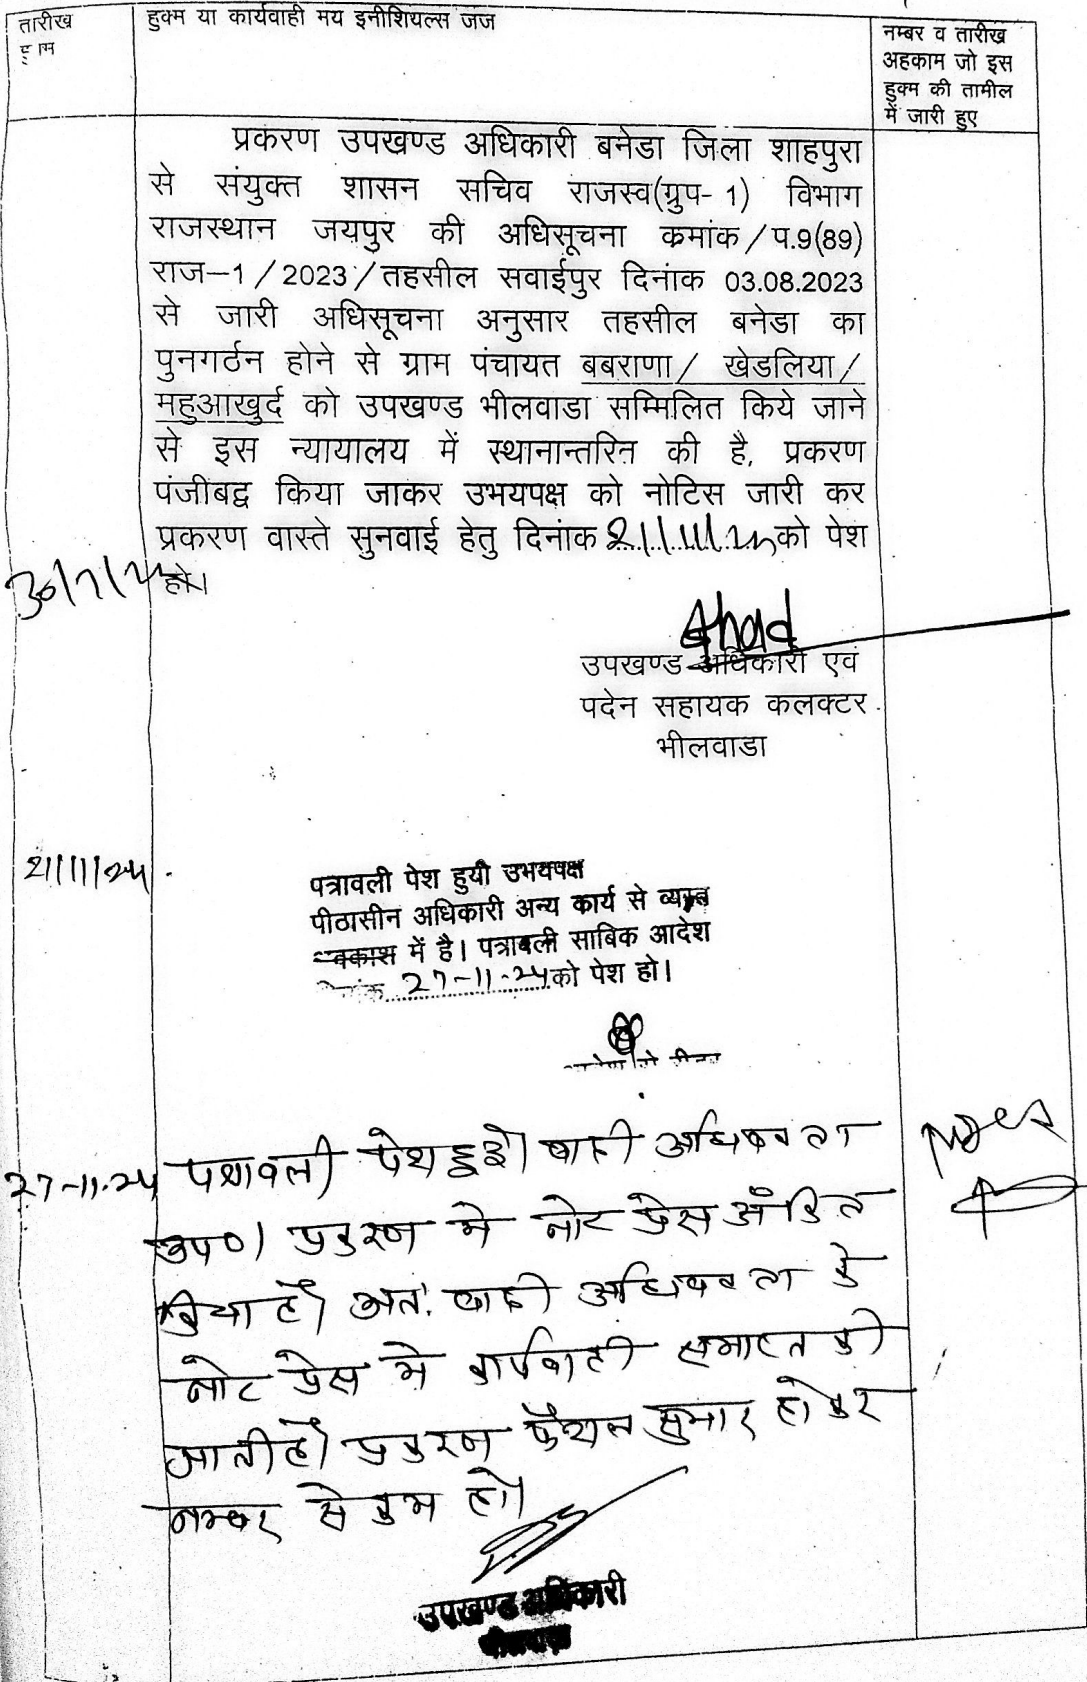 तारीख
हुक्म या कार्यवाही मय इनीशियल्स जज
नम्बर व तारीख
अहकाम जो इस
हुक्म की तामील
में जारी हुए
प्रकरण उपखण्ड अधिकारी बनेडा जिला शाहपुरा
से संयुक्त शासन सचिव राजस्व(ग्रुप- 1) विभाग
राजस्थान जयपुर की अधिसूचना क्रमांक/प.9(89)
राज–1/2023/तहसील सवाईपुर दिनांक 03.08.2023
से जारी अधिसूचना अनुसार तहसील बनेडा का
पुनगर्ठन होने से ग्राम पंचायत बबराणा/ खेडलिया/
महुआखुर्द को उपखण्ड भीलवाडा सम्मिलित किये जाने
से इस न्यायालय में स्थानान्तरित की है, प्रकरण
पंजीबद्व किया जाकर उभयपक्ष को नोटिस जारी कर
प्रकरण वास्ते सुनवाई हेतु दिनांक 21/11/24 को पेश
हो।
30/7/24
उपखण्ड अधिकारी एवं
पदेन सहायक कलक्टर
भीलवाडा
21/11/24
पत्रावली पेश हुयी उभयपक्ष
पीठासीन अधिकारी अन्य कार्य से व्यस्त
में है। पत्रावली साबिक आदेश
27-11-24 को पेश हो।
27-11-24
पत्रावली पेश हुई। वादी अधिवक्ता
उप०। प्रकरण मे नोट प्रेस अंकित
किया है। अतः वादी अधिवक्ता के
नोट प्रेस मे कार्यवाही समाप्त की
जाती है। प्रकरण फैसल सुमार होकर
नम्बर से कम हो।
उपखण्ड अधिकारी
भीलवाड़ा